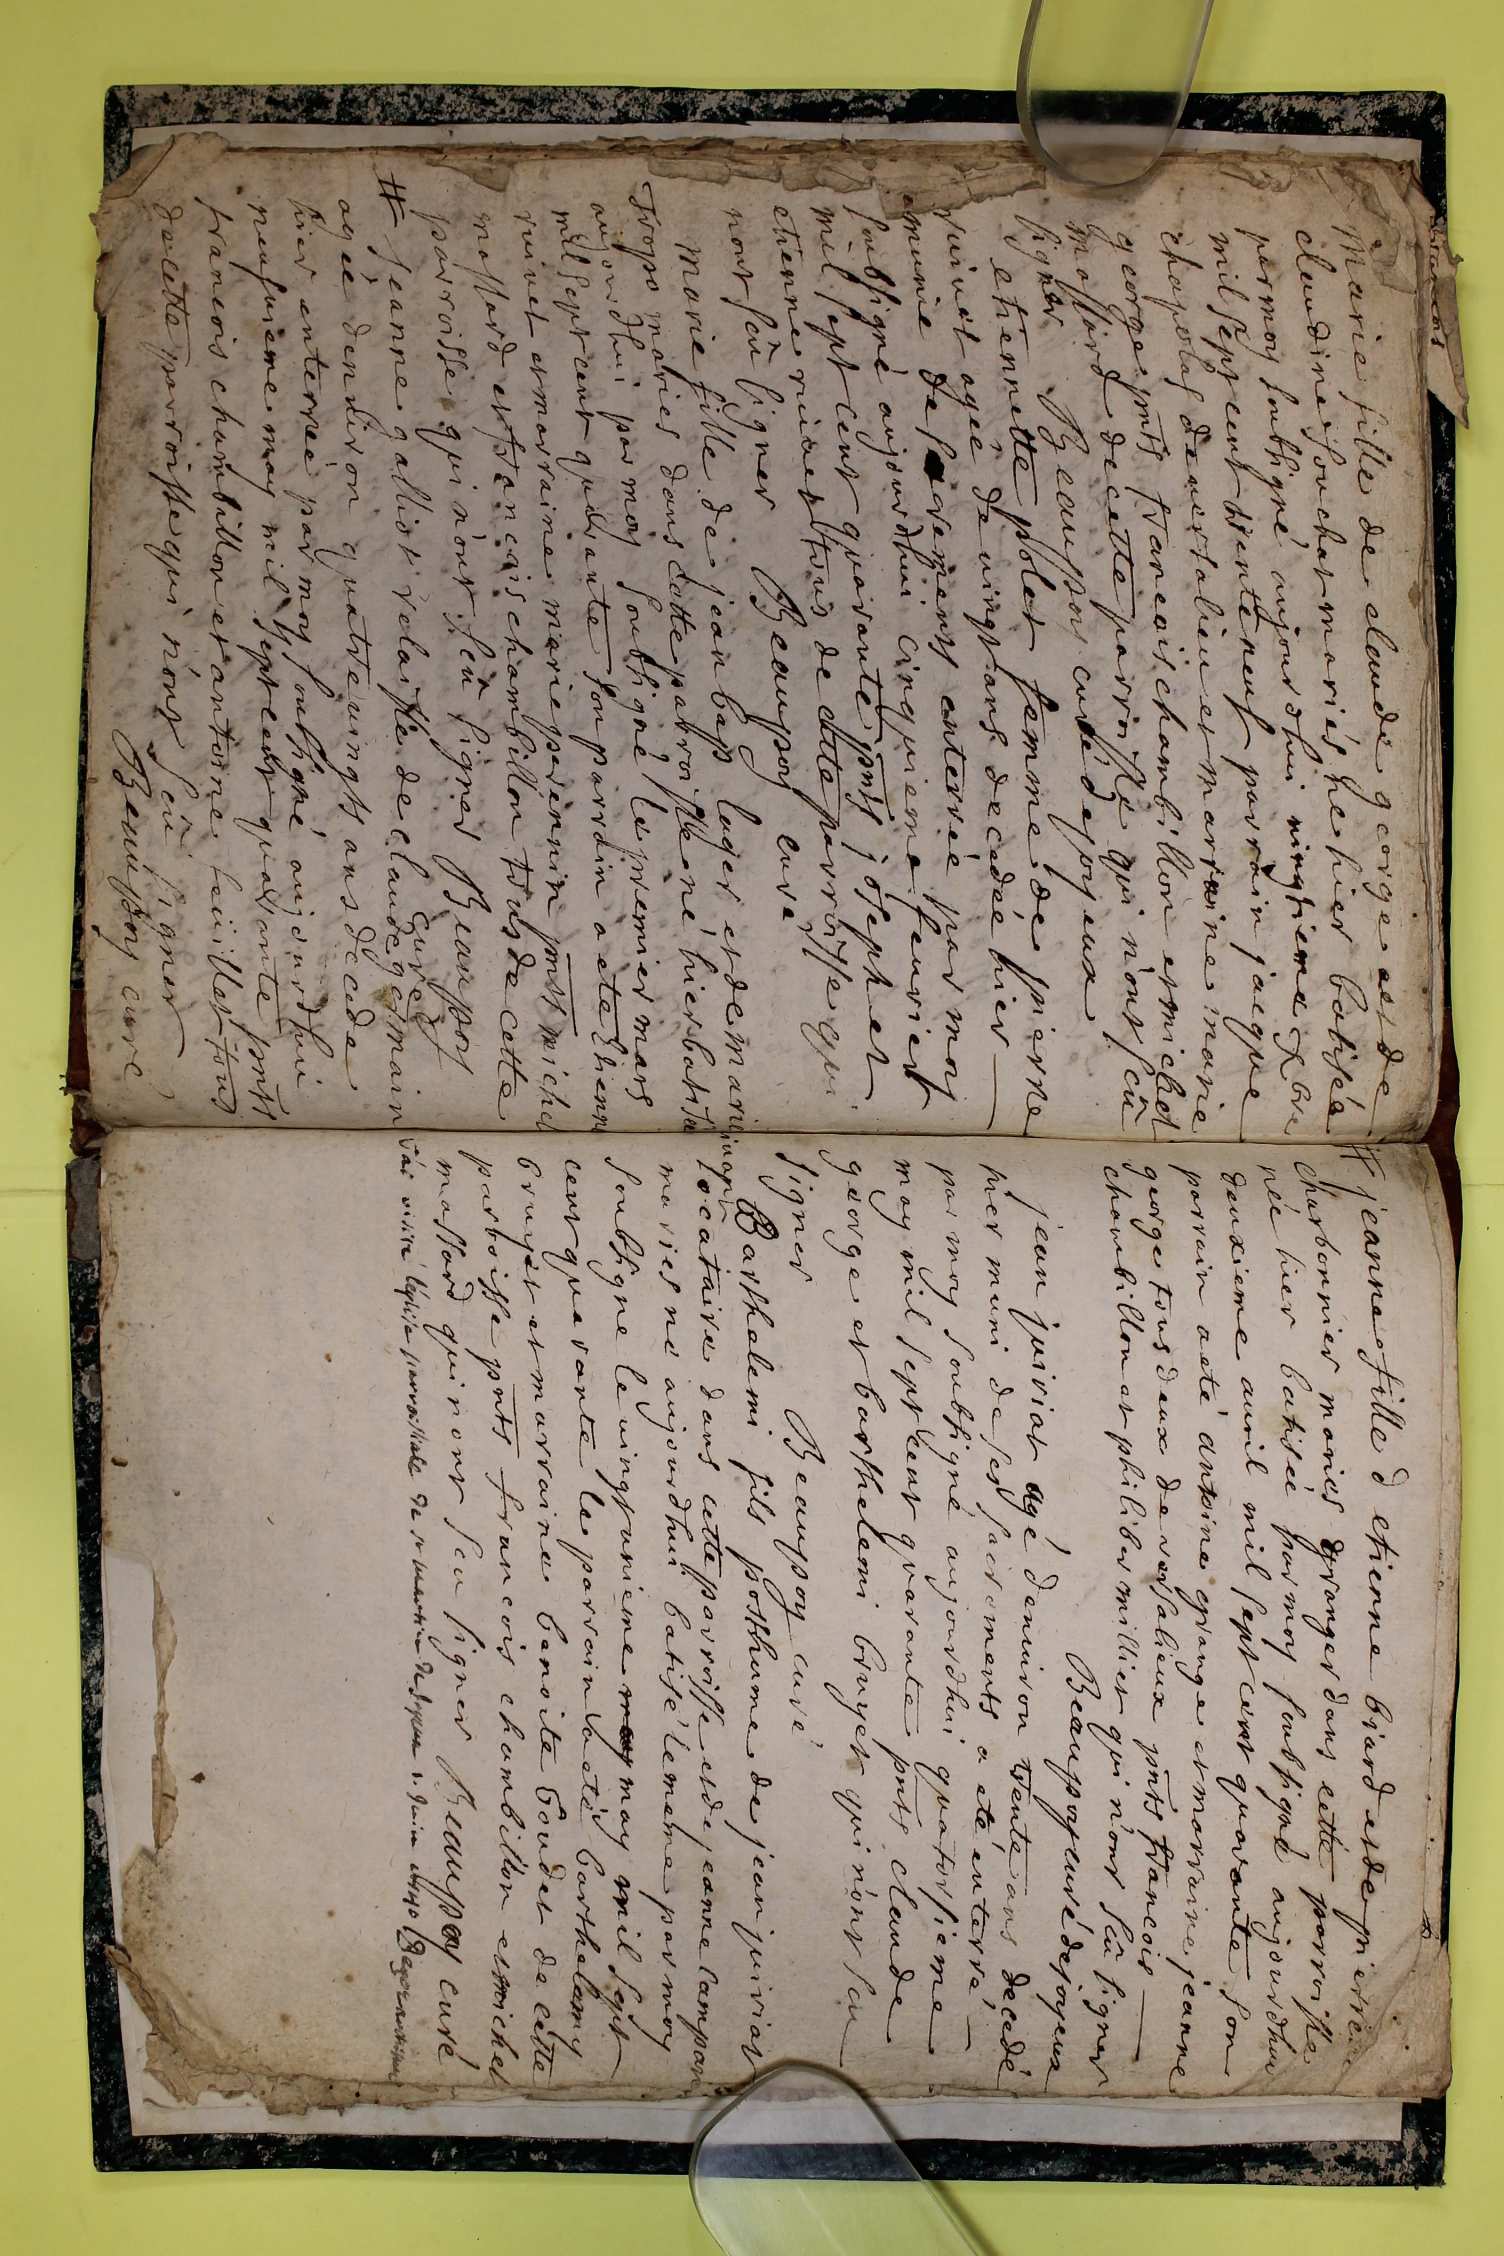 Marie fille de claude george et de
claudine souchat mariés née hier batisée
par moy soubsigné aujourdhui vingtieme xbre
mil sept cent trente neuf parrain jacque
chapolas de versalieu et marraine marie
george pnts francois chambillon et michel
massard de cette parroisse qui n'ont sçu
signer Beaupoy curé de joyeux
etiennette polet femme de pierre
ruivet agée de vingt ans decedée hier
munie de sacrements enterrée par moy
soubsigné aujourdhui cinquieme feuvrier
mil sept cent quarante pnts joseph et
etienne ruivet tous de cette parroisse qui
nont sçu signer Beaupoy curé
Marie fille de jean bap luger et de marie
mariés dans cette parroisse né hier batisée
aujourdhui par moy soubsigné le premier mars
mil sept cent quarante son parrain a eté etienne
ruivet et marraine marie perennin pnts michel
massard et francois chambillon tous de cette
parroisse qui n'ont sçu signer Beaupoy
curé
# jeanne galliot relaissée de claude germain
agée d'environ quatre vingts ans decedée
hier enterrée par moy soubsigné aujourdhui
neufvieme may mil sept cent quarante pnts
francois chambillon et antoine feuillet tous
de cette parroisse qui n'ont sçu signer
Beaupoy curé
# jeanne fille d etienne biard et de pierrette
charbonnier mariés granger dans cette parroisse
née hier batisée par moy soubsigné aujourdhui
deuxieme auril mil sept cent quarante son
parrain a eté antoine grange et marraine jeanne
george tous deux de versalieux pnts francois
chambillon et philiber millier qui n'ont sçu signer
Beaupoy curé de joyeux
jean juiriat agé d'enuiron trente ans decedé
hier muni de ses sacrements a eté enterré
par moy soubsigné aujourdhui quatorsieme
may mil sept cent quarante pnts claude
george et barthelemi bruyet qui n'ont sçu
signer Beaupoy curé
Barthelemi fils posthume de jean juiriat
uiuant locataire dans cette parroisse et de jeanne
mariés né aujourdhui batisé le meme par moy
soubsigné le vingt unieme may mil sept
cent quarante le parrain a eté barthelemy
bruyet et marraine benoite boudet de cette
parroisse pnts francois chambillon et michel
massard qui n'ont sçu signer Beaupoy curé
J'ai visité l'eglise parroissiale de